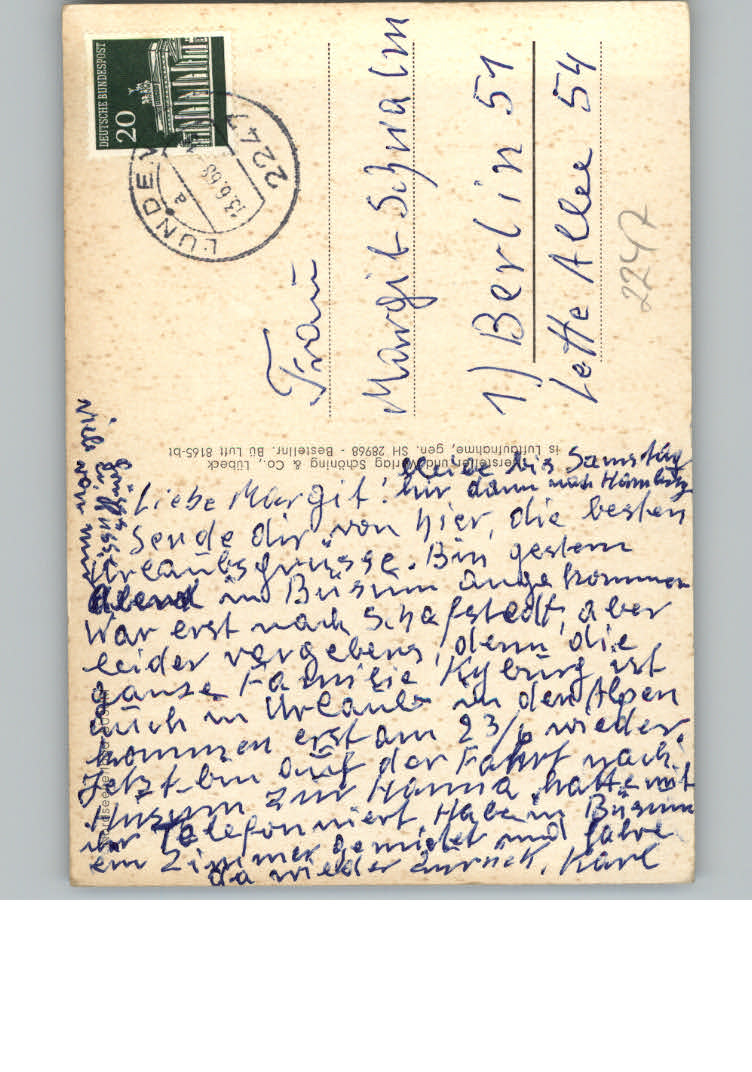 DEUTSCHE BUNDESPOST
20
LUNDEN
a
13.6.68
2247
Frau
Margit Schwalm
1) Berlin 51
Lette Allee 54
2247
Hersteller und Verlag Schöning & Co., Lübeck
is Luftaufnahme, gen. SH 28968 - Bestellnr. Bü Luft 8165-bt
bis Samstag
hir dann nach Hamburg
Liebe Margit!
Sende dir von hier, die besten
Urlaubsgrüsse. Bin gestern
Abend in Büsum angekommen
War erst nach Schafstedt, aber
leider vergebens, denn die
ganze Familie Kyburg ist
auch in Urlaub in den Alpen
kommen erst am 23/6 wieder.
Jetzt bin auf der Fahrt nach
Husum zur Hanna, hatte mit
ihr Telefonniert. Habe in Büsum
ein Zimmer gemietet und fahre
da wieder zurück. Karl
viele
Grüsse
von mir